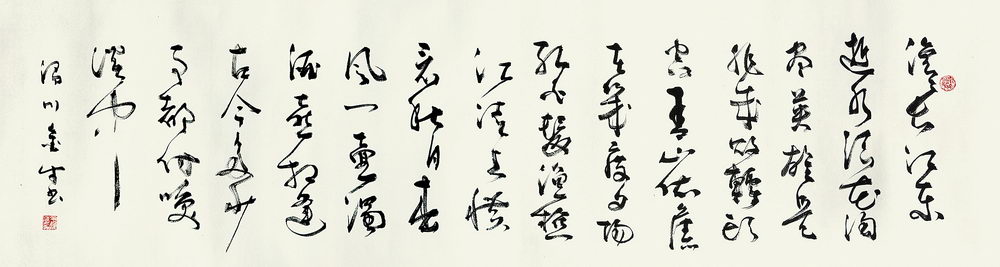 滚滚长江东
逝水浪花淘
尽英雄是
非成败转头
空青山依旧
在几度夕阳
红白髮渔樵
江渚上惯
看秋月春
风一壶浊
酒喜相逢
古今多少
事都付笑
谈中
川书